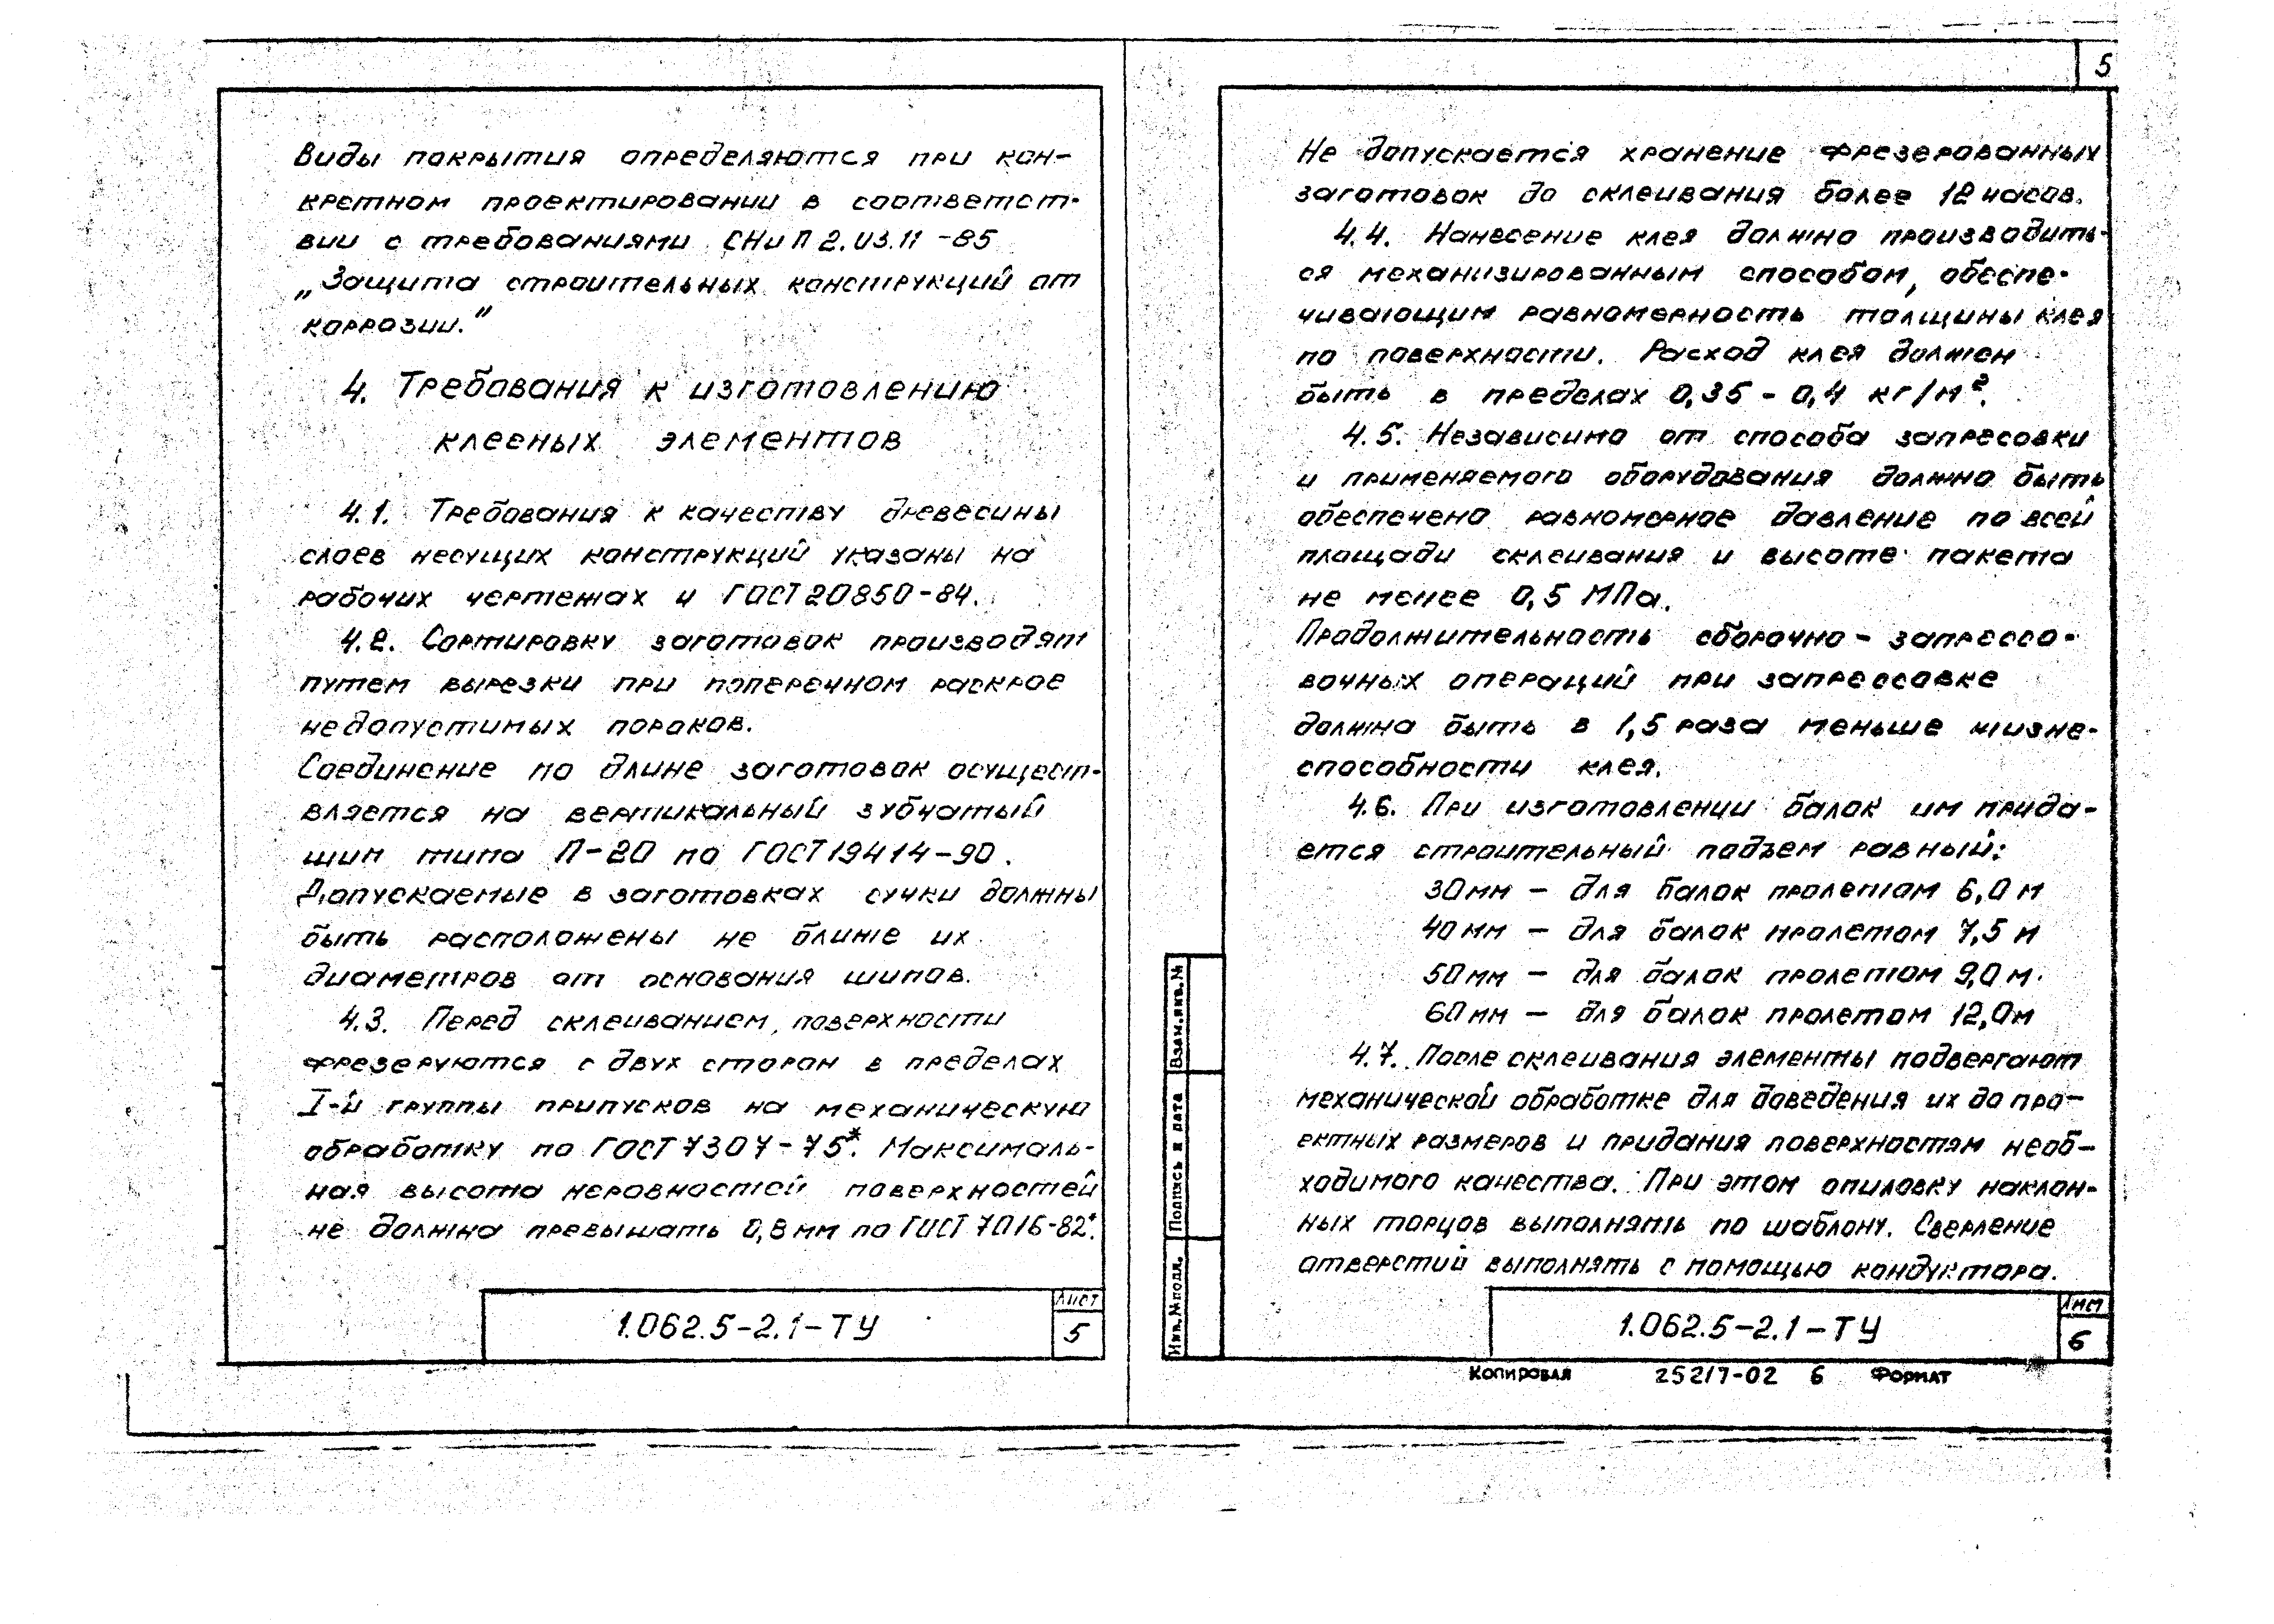 Виды покрытия определяются при кон-
кретном проектировании в соответст-
вии с требованиями СНиП 2.03.11-85
„Защита строительных конструкций от
коррозии."
4. Требования к изготовлению
клееных элементов
4.1. Требования к качеству древесины
слоев несущих конструкций указаны на
рабочих чертежах и ГОСТ 20850-84.
4.2. Сортировку заготовок производят
путем вырезки при поперечном раскрое
недопустимых пороков.
Соединение по длине заготовок осущест-
вляется на вертикальный зубчатый
шип типа II-20 по ГОСТ 19414-90.
Допускаемые в заготовках сучки должны
быть расположены не ближе их
диаметров от основания шипов.
4.3. Перед склеиванием, поверхности
фрезеруются с двух сторон в пределах
I-й группы припусков на механическую
обработку по ГОСТ 7307-75*. Максималь-
ная высота неровностей поверхностей
не должна превышать 0,8 мм по ГОСТ 7016-82*.
1.062.5-2.1-ТУ
Лист
5
5
Не допускается хранение фрезерованных
заготовок до склеивания более 12 часов.
4.4. Нанесение клея должно производить-
ся механизированным способом, обеспе-
чивающим равномерность толщины клея
по поверхности. Расход клея должен
быть в пределах 0,35 - 0,4 кг/м².
4.5. Независимо от способа запресовки
и применяемого оборудования должно быть
обеспечено равномерное давление по всей
площади склеивания и высоте пакета
не менее 0,5 МПа.
Продолжительность сборочно - запрессо-
вочных операций при запрессовке
должна быть в 1,5 раза меньше жизне-
способности клея.
4.6. При изготовлении балок им прида-
ется строительный подъем равный:
30 мм - для балок пролетом 6,0 м
40 мм - для балок пролетом 7,5 м
50 мм - для балок пролетом 9,0 м.
60 мм - для балок пролетом 12,0 м
4.7. После склеивания элементы подвергают
механической обработке для доведения их до про-
ектных размеров и придания поверхностям необ-
ходимого качества. При этом опиловку наклон-
ных торцов выполнять по шаблону. Сверление
отверстий выполнять с помощью кондуктора.
Взам.инв.№
Подпись и дата
Инв.№подл.
1.062.5-2.1-ТУ
Лист
6
Копировал 25217-02 6 Формат